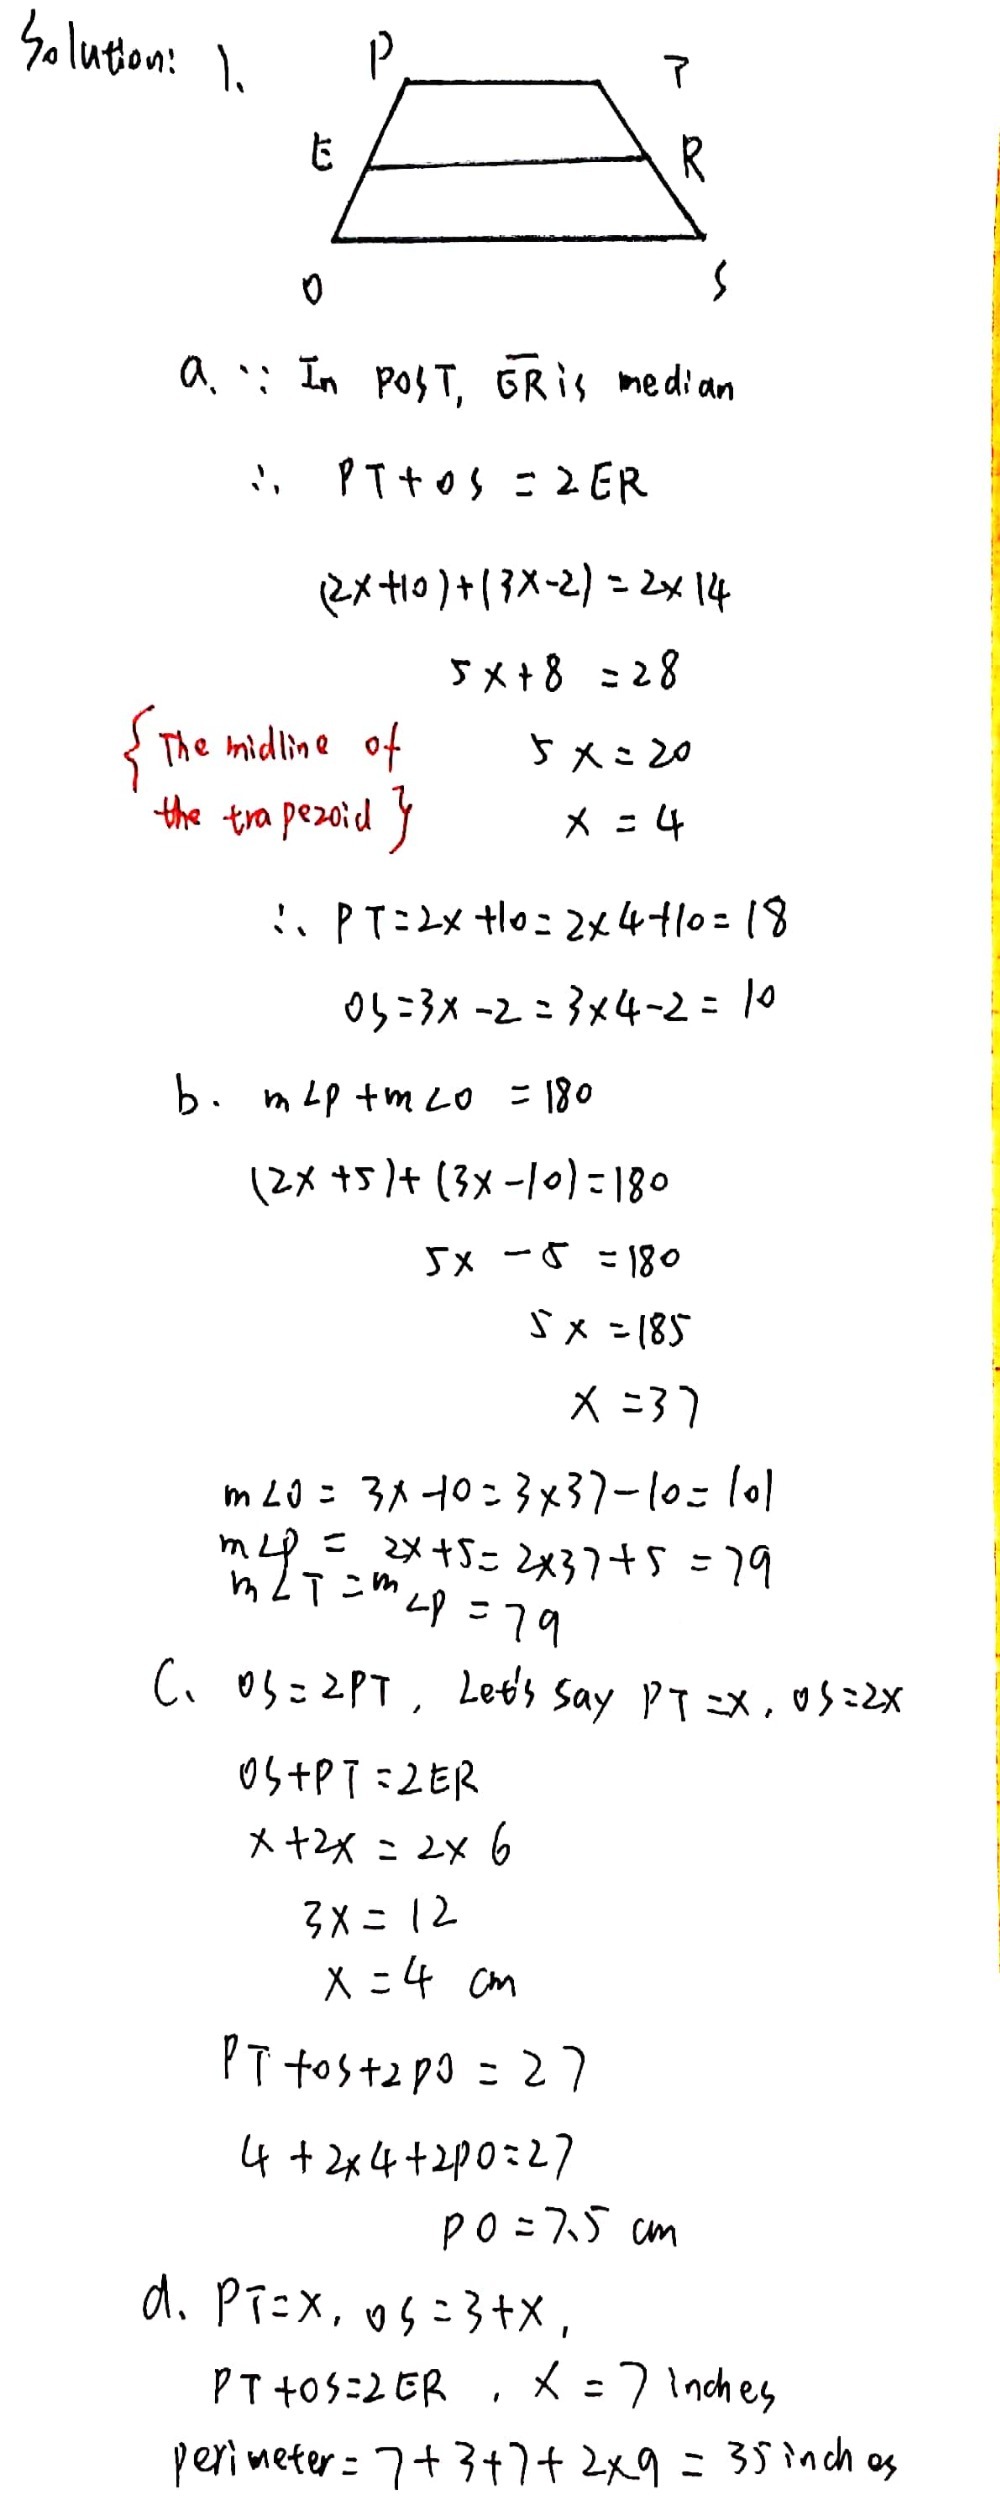 Solution: 1.
P T
E R
O S
a. ∵ In POST, \overline{ER} is median
∴ PT+OS = 2ER
(2x+10)+(3x-2)=2×14
5x+8 =28
5x=20
x = 4
{The midline of
the trapezoid}
∴ PT=2x+10=2×4+10=18
OS=3x-2=3×4-2=10
b. m∠P+m∠O =180
(2x+5)+(3x-10)=180
5x-5 =180
5x=185
x =37
m∠O= 3x-10=3×37-10=101
m∠P = 2x+5=2×37+5=79
m∠T=m∠P=79
C. OS=2PT, Let's say PT=x, OS=2x
OS+PT=2ER
x+2x=2×6
3x=12
x=4 cm
PT+OS+2PO=27
4+2×4+2PO=27
PO=7.5 cm
d. PT=x, OS=3+x,
PT+OS=2ER, x=7 inches
perimeter=7+3+7+2×9=35 inches